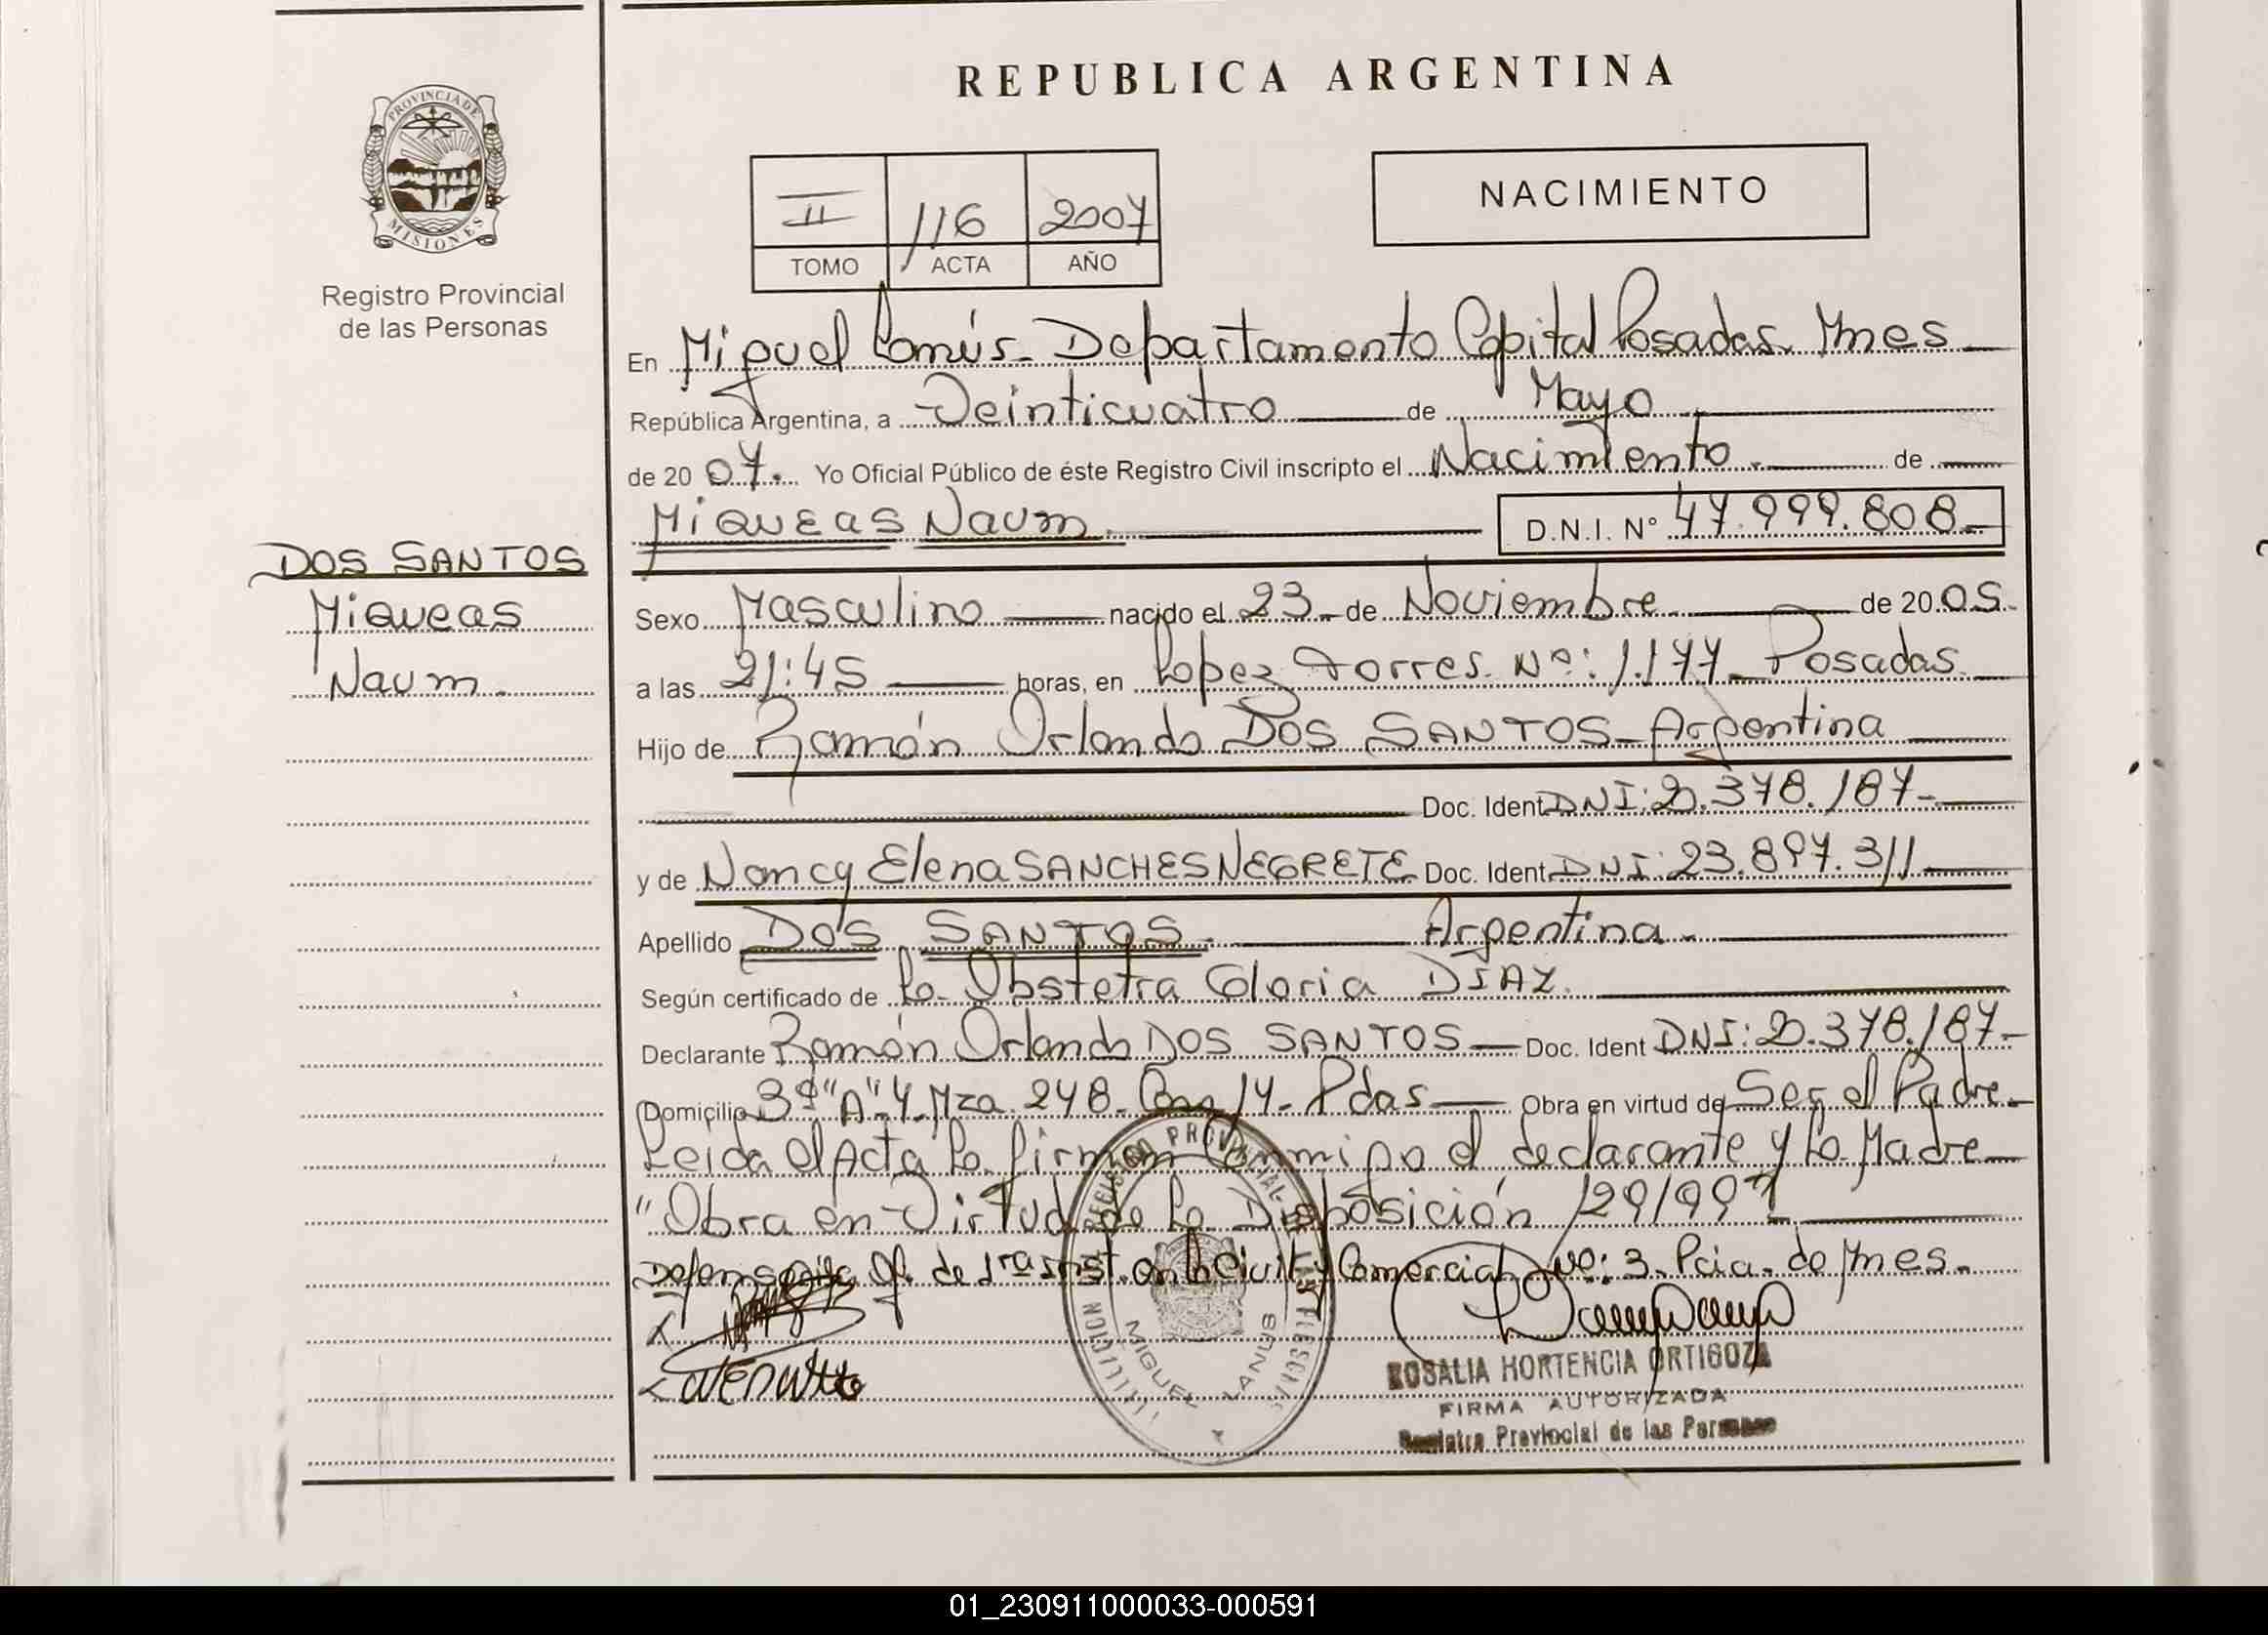 REPUBLICA ARGENTINA
PROVINCIA DE
MISIONES
Registro Provincial
de las Personas
II 116 2007
TOMO ACTA AÑO
NACIMIENTO
En Miguel Lanús - Departamento Capital Posadas. Mnes
República Argentina, a Veinticuatro de Mayo
de 20 07. Yo Oficial Público de éste Registro Civil inscripto el Nacimiento. de
Miqueas Naum. D.N.I. Nº 47.999.808
DOS SANTOS
Miqueas
Naum.
Sexo Masculino nacido el 23 de Noviembre de 20 05.
a las 21:45 horas, en Lopez Torres. Nº: 1.177 - Posadas.
Hijo de Ramón Orlando DOS SANTOS - Argentina
Doc. Ident DNI: .378.187-
y de Nancy Elena SANCHES NEGRETE Doc. Ident DNI: 23.897.311
Apellido DOS SANTOS. Argentina.
Según certificado de la Obstetra Gloria DIAZ.
Declarante Ramón Orlando DOS SANTOS Doc. Ident DNI: .378.187-
Domicilio "A" 4. Mza 248. 14 - Pdas Obra en virtud de Ser el Padre.
Leida el Acta la firman Conmigo el declarante y la Madre
"Obra en Virtud de la Disposición 129/99"
Of. de 1ra Inst. en lo Civil y Comercial Nº: 3. Pcia. de Mnes.
REGISTRO PROVINCIAL DE LAS PERSONAS
MIGUEL LANUS
ROSALIA HORTENCIA ORTIGOZA
FIRMA AUTORIZADA
Registro Provincial de las Personas
01_230911000033-000591